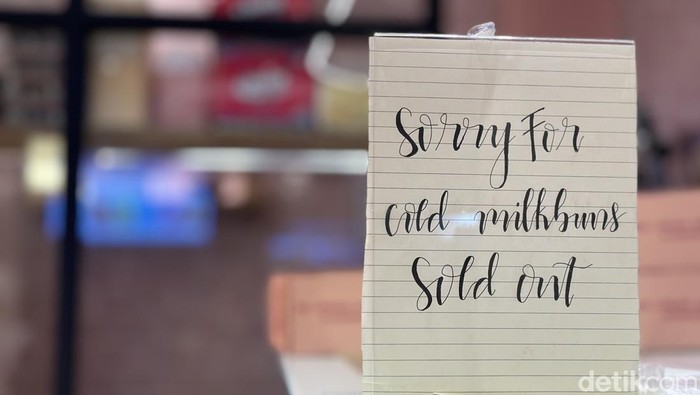 Sorry For
cold milkbuns
Sold out
detikcom